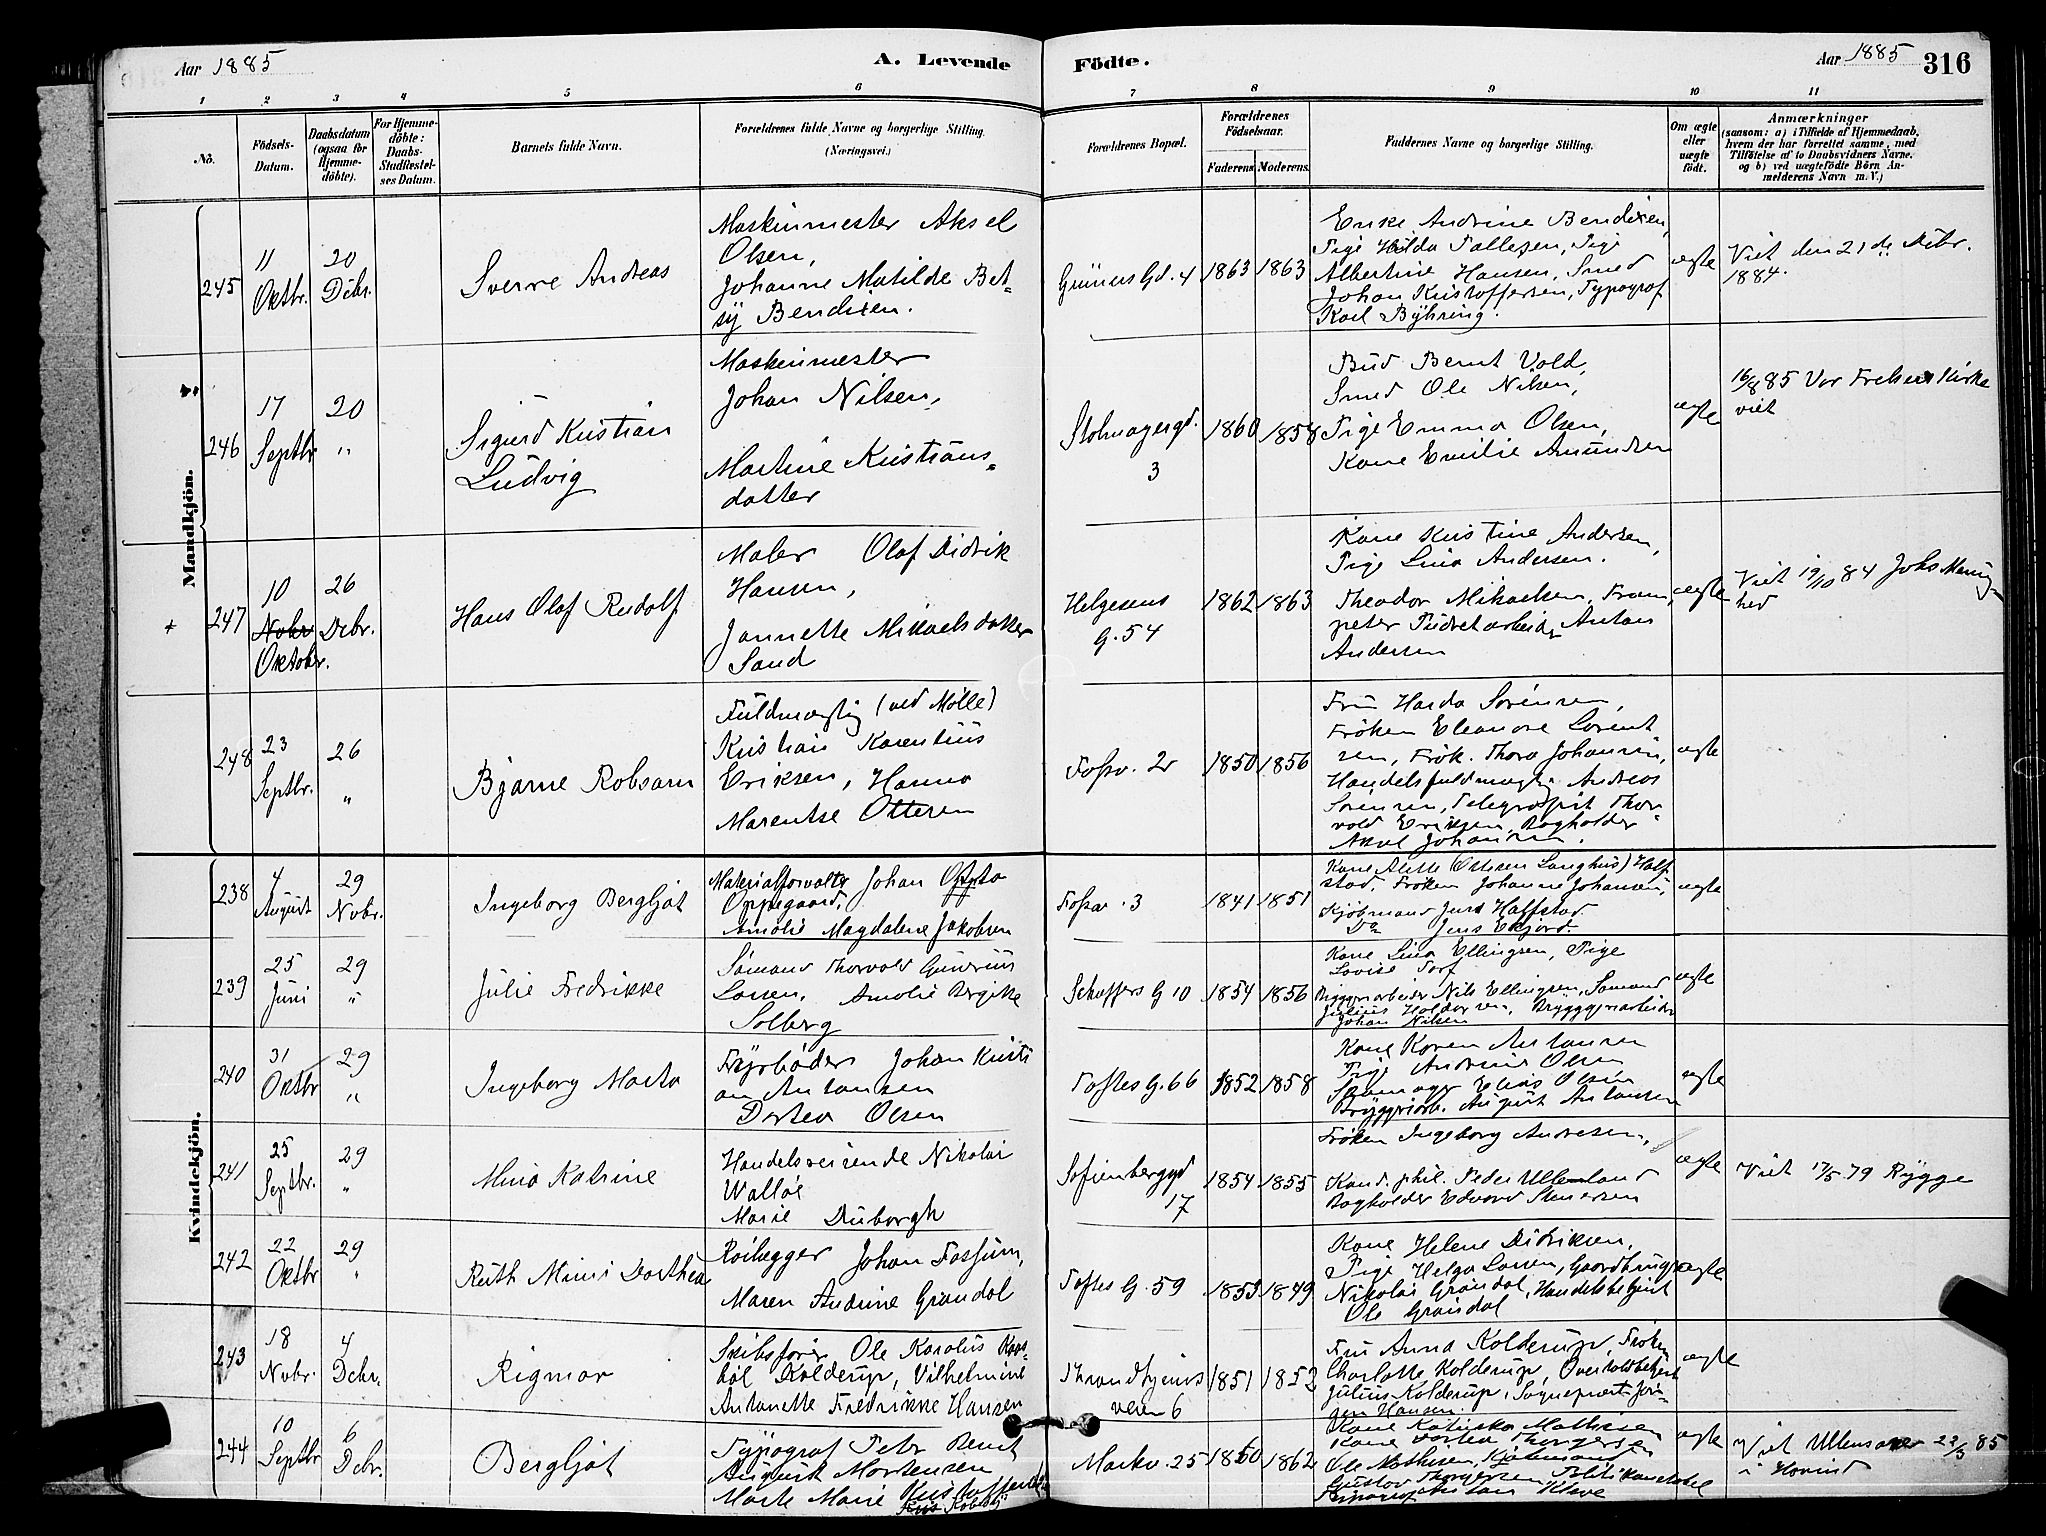 Aar 1885 A. Levende Födte. Aar 1885 316
1 2 3 4 5 6 7 8 9 10 11
No.
Födsels-Datum.
Daabsdatum (ogsaa for Hjemme-döbte).
For Hjemme-döbte: Daabs-Stadfæstelses Datum.
Barnets fulde Navn.
Forældrenes fulde Navne og borgerlige Stilling.
(Næringsvei.)
Forældrenes Bopæl.
Forældrenes Födselsaar.
Faderens. Moderens.
Faddernes Navne og borgerlige Stilling.
Om ægte eller uægte födt.
Anmærkninger
(saasom: a) i Tilfælde af Hjemmedaab,
hvem der har forrettet samme, med
Tilföielse af to Daabsvidners Navne.
og b) ved uægtefödte Börn An-
melderens Navn m. V.)
Mandkjön.
245
11 Oktbr.
20 Dcbr.
Sverre Andreas
Maskinmester Aksel
Olsen,
Johanne Matilde Bet-
sy Bendixen.
Grüners Gd. 4
1863 1863
Enke Andrine Bendixen,
Pige Hilda Tallefsen, Pige
Albertine Hansen, Smed
Johan Kristoffersen, Typograf
Karl Byhring.
ægte
Viet den 21de Dcbr.
1884.
246
17 Septbr
20 "
Sigurd Kristian
Ludvig
Maskinmester
Johan Nilsen,
Martine Kristians-
datter
Stolmagergd.
3
1860 1858
Bud Bernt Vold,
Smed Ole Nilsen,
Pige Emma Olsen,
Kone Emilie Amundsen
ægte
16/8 85 Vor Frelsers Kirke
viet
+ 247
10 Nobr Oktobr.
26 Dcbr.
Hans Olaf Rudolf
Maler Olaf Didrik
Hansen,
Jannette Mikaelsdatter
Sand
Helgesens
G. 54
1862 1863
Kone Kristine Andersen,
Pige Lina Andersen.
Theodor Mikaelsen, Fram,
peter Pudretarbeider Anton
Andersen
ægte
Viet 19/10 84 Johs Menig-
hed
248
23 Septbr.
26 "
Bjarne Robsam
Fuldmægtig (ved Mølle)
Kristian Karenlius
Eriksen, Hanna
Marentse Ottesen
Fossv. 2
1850 1856
Fru Harda Sørensen,
Frøken Eleanore Lorent
sen, Frøk. Thora Johansen,
Handelsfuldmægtig Andreas
Sørensen, Telegrafist Thor-
vald Eriksen, Bogholder
Aksel Johansen.
ægte
Kvindekjön.
238
4 August
29 Nobr.
Ingeborg Bergljot
Materialforvalter Johan
Oppegaard,
Amalie Magdalene Jakobsen
Fossv. 3
1841 1851
Kone Alette (Ottesen Langhus) Half
stad, Frøken Johanne Johansen,
Kjøbmand Jens Halfstad.
Do Jens Ekjord.
ægte
239
25 Juni
29 "
Julie Fredrikke
Sømand Thorvald Gundrius
Larsen, Amalie Birgitte
Solberg
Schoffers G 10
1854 1856
Kone Lina Ellingsen, Pige
Lovise Torf
Bryggeriarbeider Nils Ellingsen, Sømand
Julius Haldorsen, Bryggeriarbeider
Johan Nilsen
ægte
240
31 Oktbr
29 "
Ingeborg Marta
Fyrbøder Johan Kristi
an Antonsen
Dortea Olsen
Toftes G. 66
1852 1858
Kone Karen Antonsen
Pige Andrine Olsen
Skomager Elias Olsen
Bryggeriarb. August Antonsen
ægte
241
25 Septbr.
29 "
Mina Katrine
Handelsreisende Nikolai
Walløe
Marie Duborgh
Sofienberggd
17
1854 1855
Frøken Ingeborg Andresen,
Kand. phil. Peder Ullenland
Bogholder Edvard Stenersen
ægte
Viet 17/5 79 Rygge
242
22 Oktbr
29 "
Ruth Mimi Dorthea
Rørlægger Johan Fossum,
Maren Andrine Grøndal
Toftes G. 59
1853 1849
Kone Helene Didriksen,
Pige Helga Larsen, Gaardbruger
Nikolai Grøndal, Handelsbetjent
Ole Grøndal
ægte
243
18 Nobr.
4 Dcbr.
Rigmor
Skibsfører Ole Karolus
Kolderup, Vilhelmine
Antonette Fredrikke Hansen
Throndhjems
veien 6
1851 1852
Fru Anna Kolderup, Frøken
Charlotte Kolderup, Overtoldbetjent
Julius Kolderup, Sogneprest Jør-
gen Hansen.
ægte
244
10 Septbr
6 Dcbr.
Bergljot
Typograf Peter Bernt
August Mortensen
Marte Marie Kristoffersd.
Markv. 25
1860 1862
Kone Katinka Mathisen
Kone Dortea Thorgersen
Ole Mathisen, Kjøbmand
Gustav Thorgersen, Politikonstabel
Kleve
ægte
Viet Ullensaker 22/3 85
i Hovind